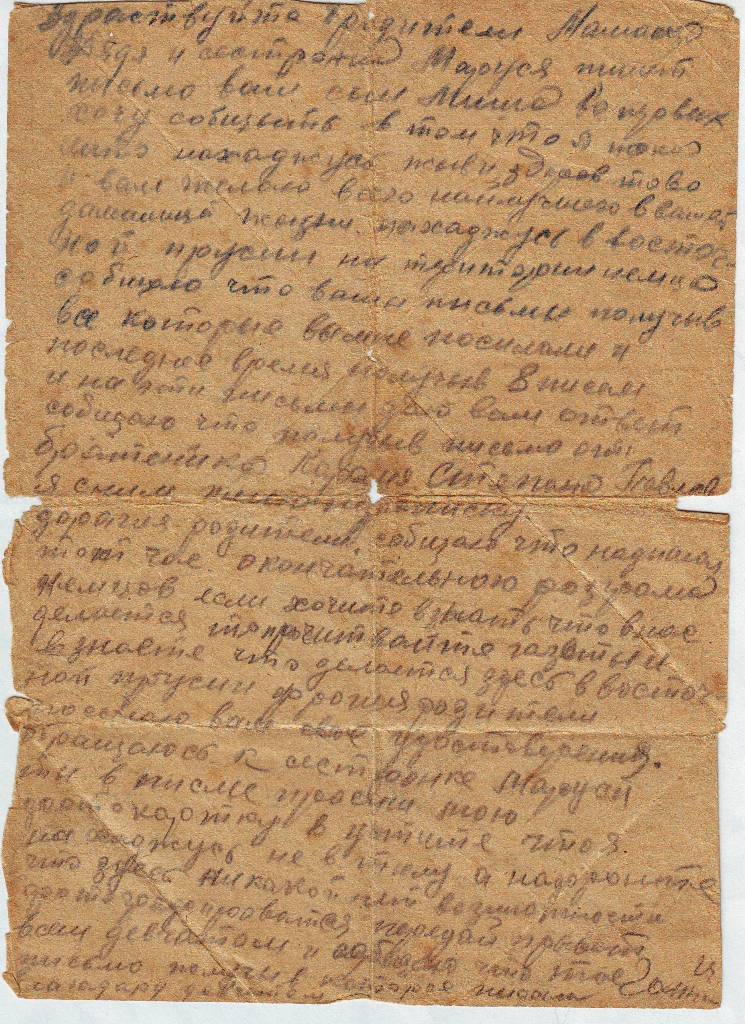 здраствуйта родители Мамаша
Дядя и сестронка Маруся пишит
письмо вам сын Миша во первых
хочу собщыть в том что я пока
нахаджусь жыв и здоров тово
и вам желаю всего наилучшого в вашай
дамашней жызни нахаджусь в восточ
ной прусии на територии немца
собщаю что ваша письмы получыв
все которые вы мне посилали и
последнее время получыв 8 писем
и на эти письмы даю вам ответ
собщаю что получыв письмо от
братеника Степана Павлов
я с ним
дорогия родители собщаю что надишол
тот час окончательного розгрома
немцов если хочите взнать что внас
делается то прочитвайтя газеты и
взнаете что делается здесь в восточ
ной прусии дорогия родители
посилаю вам свое удостоверения.
обращаюсь к сестронке Маруси
ты в письме просиш мою
фотокартку учтите что я
нахожусь не в тылу а на фронте
что здесь никакой нет возможности
фотографироватся передай прывет
всем девчатам и собщаю что твое
письмо получыв которое писала
благодару